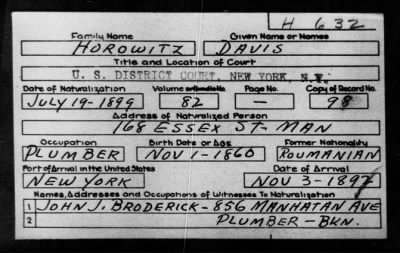 H 632
Family Name Given Name or Names
HOROWITZ DAVIS
Title and Location of Court
U. S. DISTRICT COURT, NEW YORK, N.Y.
Date of Naturalization Volume or Bundle No. Page No. Copy of Record No.
JULY 19-1899 82 — 98
Address of Naturalized Person
168 ESSEX ST- MAN
Occupation Birth Date or Age Former Nationality
PLUMBER NOV 1-1860 ROUMANIAN
Port of Arrival in the United States Date of Arrival
NEW YORK NOV 3-189
Names, Addresses and Occupations of Witnesses To Naturalization
1 JOHN J. BRODERICK - 856 MANHATAN AVE
2 PLUMBER - BKN.